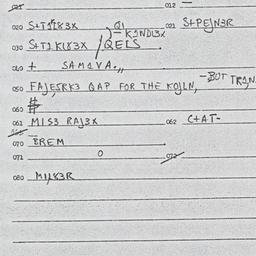 021 012 —
020 S+T1L83X Q1 021 S+PEJN3R
)-K1NDI3X
030 S+T1KI83X /QELS
040 + SAM1VA.,,
050 FAJESRK3 QAP FOR THE KOJLN, -BUT TRAN
060 #
061 MIS3 RAJ3X 062 C+AT-
070 BREM
071 O 072
080 MIL83R